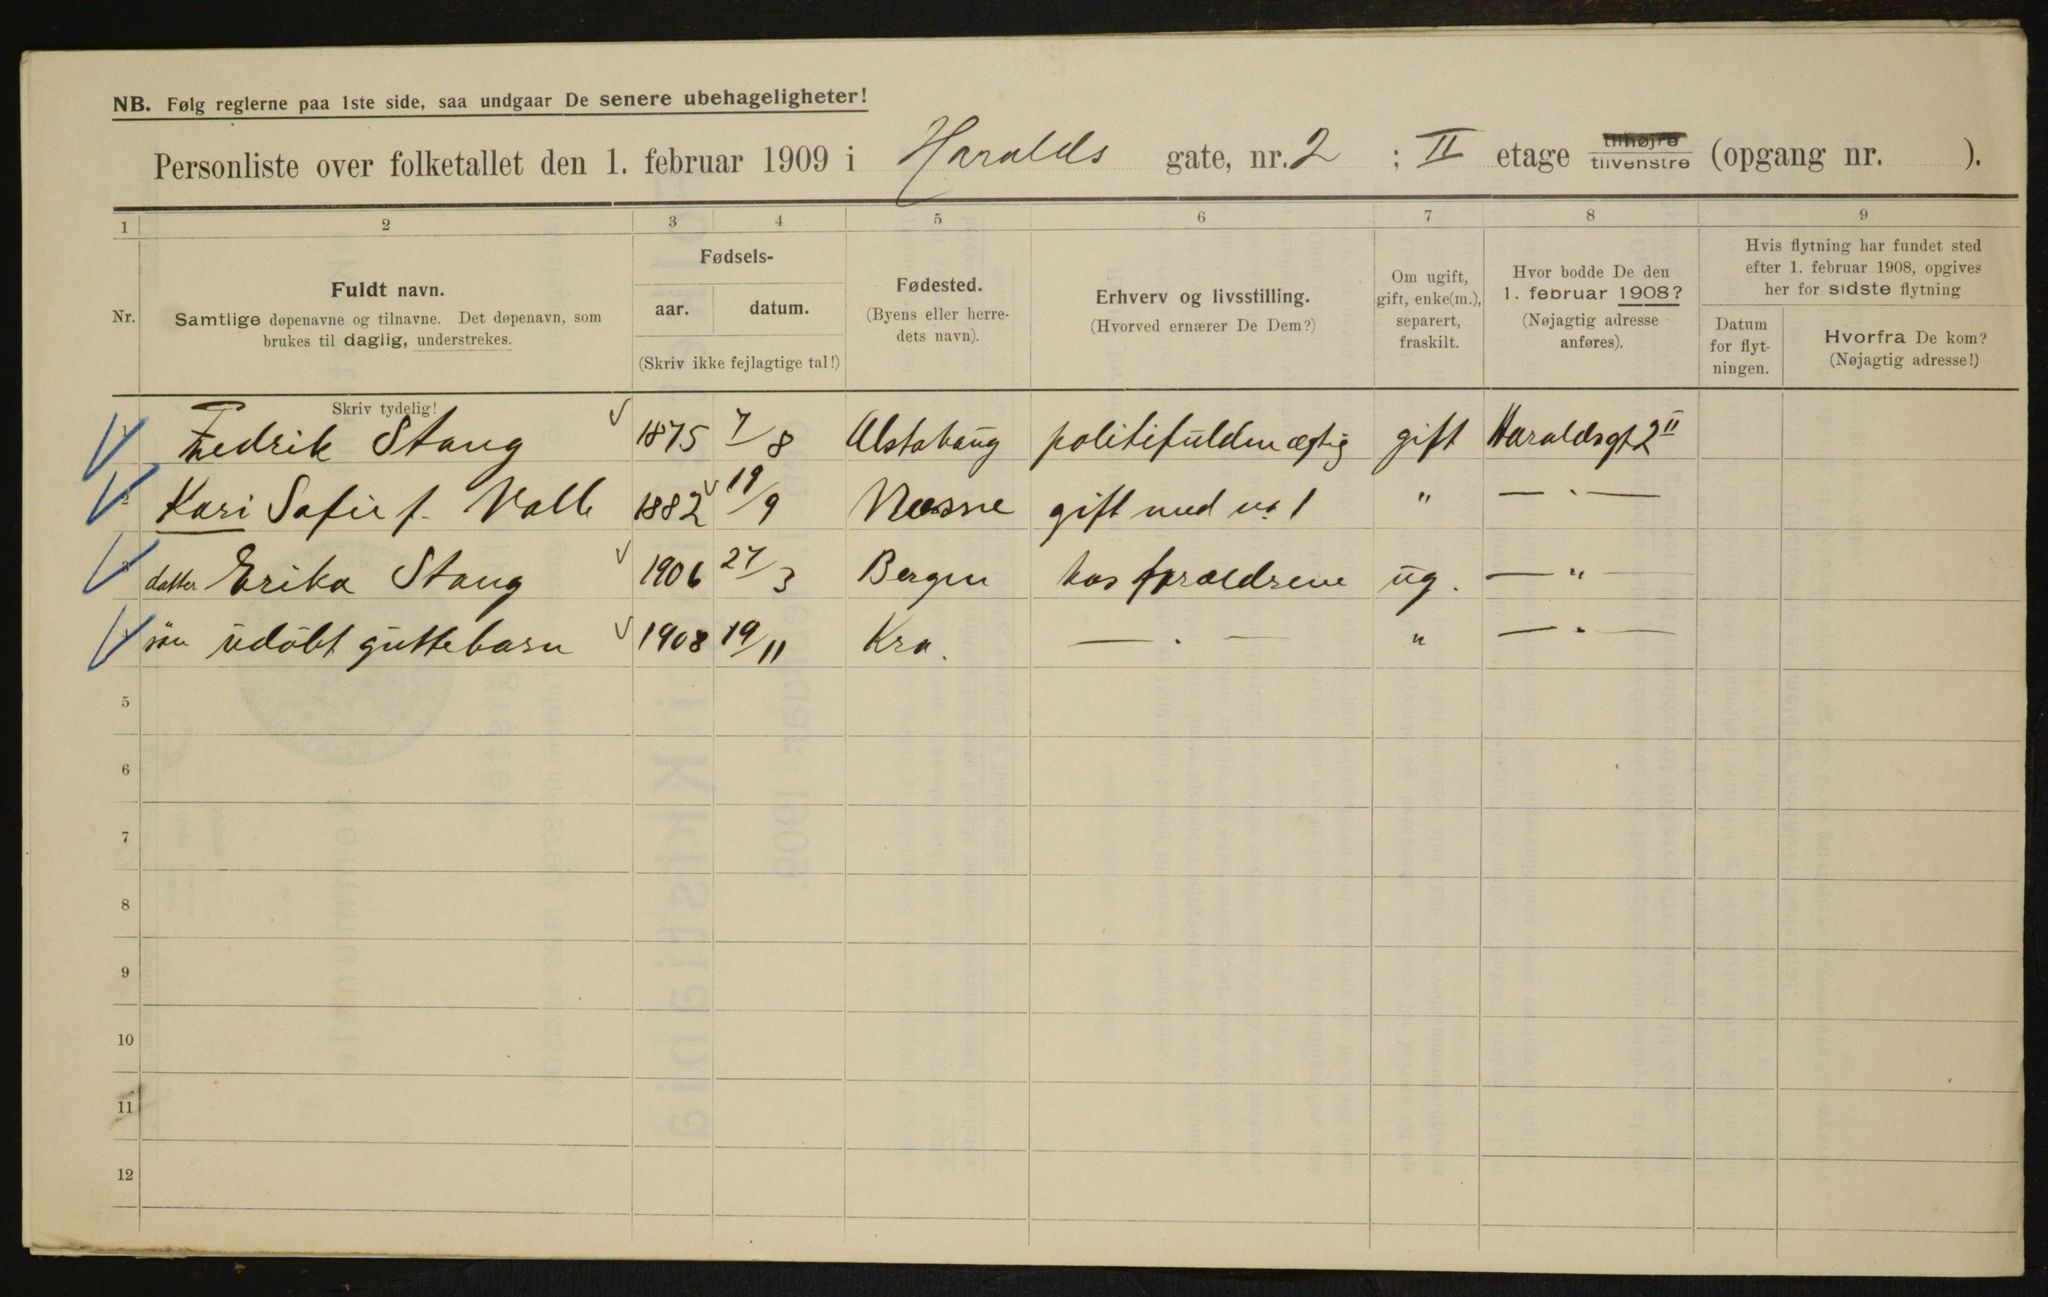 NB. Følg reglerne paa 1ste side, saa undgaar De senere ubehageligheter!
Personliste over folketallet den 1. februar 1909 i Haralds gate, nr. 2 ; II etage tilhøjre tilvenstre (opgang nr. ).
1 2 3 4 5 6 7 8 9
Nr.
Fuldt navn.
Samtlige døpenavne og tilnavne. Det døpenavn, som
brukes til daglig, understrekes.
Fødsels-
aar. datum.
(Skriv ikke fejlagtige tal!)
Fødested.
(Byens eller herre-
dets navn).
Erhverv og livsstilling.
(Hvorved ernærer De Dem?)
Om ugift,
gift, enke(m.),
separert,
fraskilt.
Hvor bodde De den
1. februar 1908?
(Nøjagtig adresse
anføres).
Hvis flytning har fundet sted
efter 1. februar 1908, opgives
her for sidste flytning
Datum
for flyt-
ningen.
Hvorfra De kom?
(Nøjagtig adresse!)
Skriv tydelig!
1 Fredrik Stang 1875 7/8 Alstahaug politifuldmægtig gift Haraldsgt 2 II
2 Kari Sofie f. 1882 19/9 gift med no 1 " — " —
3 datter Erika Stang 1906 27/3 Bergen hos forældrene ug. — " —
4 søn udøbt guttebarn 1908 19/11 Kra. — " — " — " —
5
6
7
8
9
10
11
12